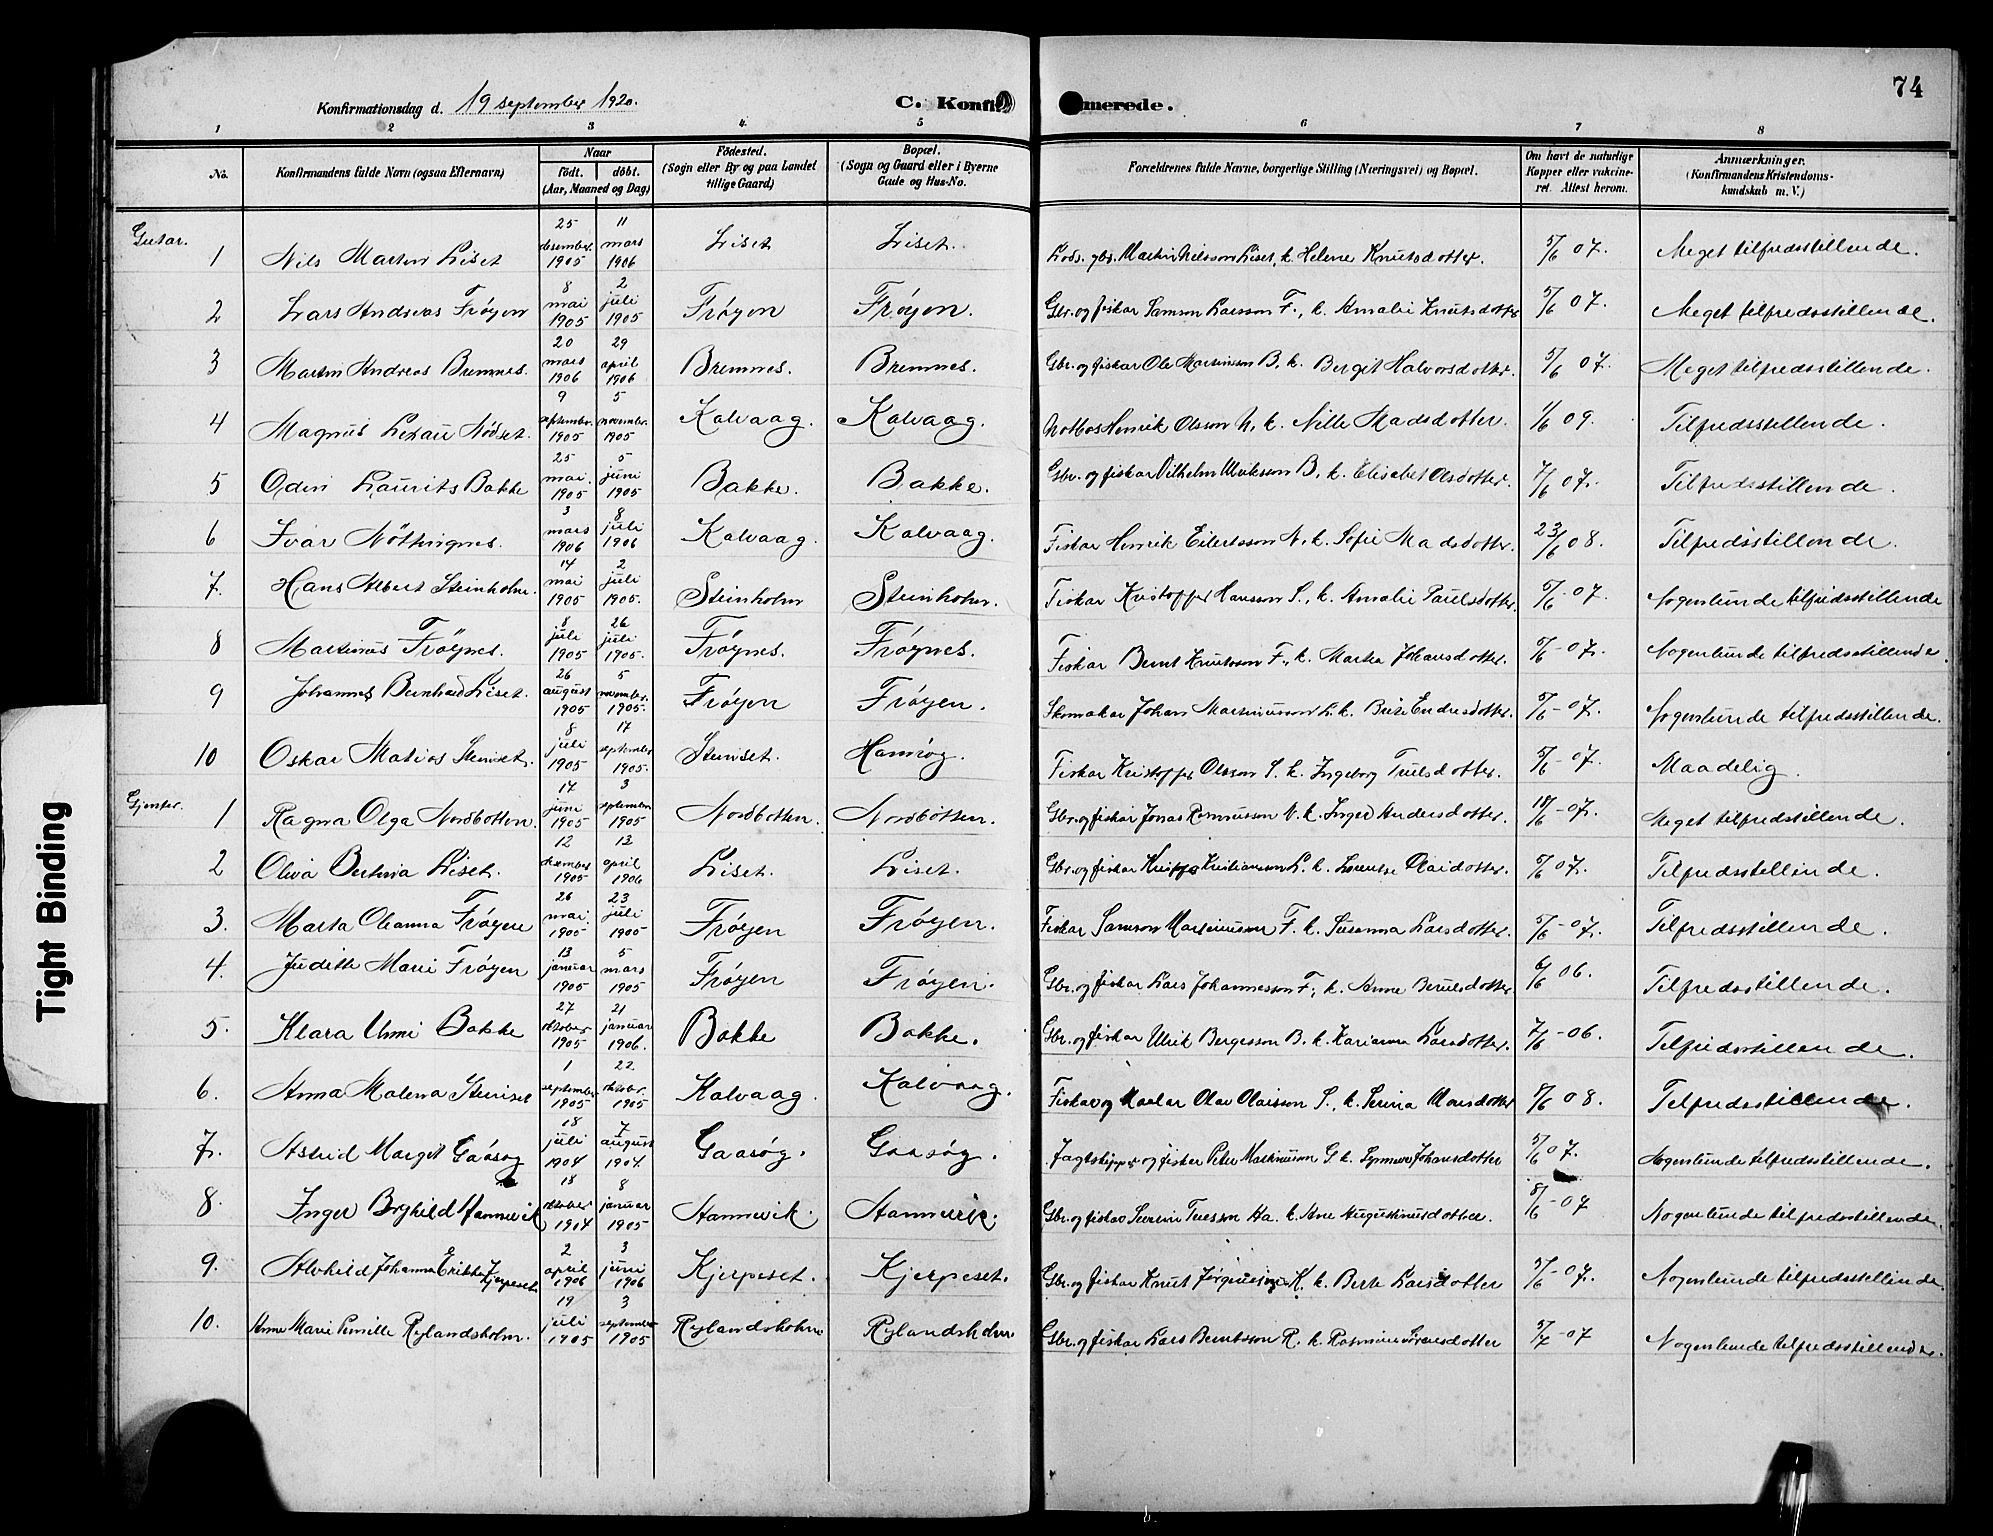 74
Konfirmationsdag d. 19 september 1920. C. Konfirmerede.
1 2 3 4 5 6 7 8
No. Konfirmandens fulde Navn (ogsaa Efternavn) Naar født. døbt. (Aar, Maaned og Dag) Fødested. (Sogn eller By og paa Landet tillige Gaard) Bopæl. (Sogn og Gaard eller i Byerne Gade og Hus-No. Forældrenes fulde Navne, borgerlige Stilling (Næringsvei) og Bopæl. Om havt de naturlige Kopper eller vakcineret. Attest herom. Anmærkninger. (Konfirmandens Kristendomskundskab m. V.)
Gutar.
1 Nils Martin Liset 25 desember 1905 11 mars 1906 Liset Liset. Lods. gbr. Martin Nilsson Liset, k. Helene Knutsdotter. 5/6 07. Meget tilfredsstillende.
2 Lars Andreas Frøyen 8 mai 1905 2 juli 1905 Frøyen Frøyen. Gbr. og fiskar Samson Larsson F., k. Amalie Knutsdotter 5/6 07. Meget tilfredsstillende.
3 Martin Andreas Bremnes. 20 mars 1906 29 april 1906 Bremnes. Bremnes. Gbr. og fiskar Ole Martinsson B. k. Berget Halvorsdotter. 5/6 07. Meget tilfredsstillende.
4 Magnus 9 september 1905 5 november 1905 Kalvaag. Kalvaag. Notbas Henrik Olsson N. k. Nille Madsdotter. 1/6 09. Tilfredsstillende.
5 Odin Laurits Bakke 25 mai. 1905 5 juni 1905 Bakke. Bakke. Gbr. og fiskar Vilhelm Ulriksson B. k. Elisabet Olsdotter. 7/6 07. Tilfredsstillende.
6 Ivar Nøttingnes. 3 mars 1906 8 juli 1906 Kalvaag. Kalvaag. Fiskar Henrik Eilertsson N. k. Sofie Madsdotter. 23/6 08. Tilfredsstillende.
7. Hans Albert Steinholm. 14 mai 1905 2 juli 1905. Steinholm Steinholm. Fiskar Kristoffer Hansson S., k. Amalie Paulsdotter. 5/6 - 07. Nogenlunde tilfredsstillende
8 Martinus Frøynes. 8 juli 1905 26 juli 1905. Frøynes. Frøynes. Fiskar Bernt Knutsson F., k. Marta Johansdotter. 5/6 - 07. Nogenlunde tilfredsstillende.
9 Johannes Bernhard Liset. 26 august 1905 5 november. 1905. Frøyen Frøyen. Skomakar Johan Martinusson L. k. Brite Endresdotter. 5/6 - 07. Nogenlunde tilfredsstillende.
10 Oskar Matias Steinset. 8 juli 1905 17 september 1905. Steinset. Hamnøy. Fiskar Kristoffer Olsson S. k. Ingeborg Truelsdotter. 5/6 - 07. Maadelig.
Gjenter.
1 Ragna Olga Nordbotten. 17 juni 1905 3 september 1905 Nordbotten. Nordbotten. Gbr. og fiskar Jonas Rasmusson N. k. Inger Andersdotter. 18/6 - 07. Meget tilfredsstillende.
2 Oliva Bertina Liset. 12 desember 1905 13 april 1906 Liset. Liset. Gbr. og fiskar Kristianson L. k. Lorentse Olaidotter. 5/6 07. Tilfredsstillende.
3. Marta Oleanna Frøyen 26 mai. 1905 23 juli 1905 Frøyen Frøyen. Fiskar Samson Martinusson F. k. Susanna Larsdotter. 5/6 - 07. Tilfredsstillende.
4. Judithe Marie Frøyen 13 januar 1905 5 mars 1905 Frøyen Frøyen. Gbr. og fiskar Lars Johannesson F., k. Anne 6/6 06. Tilfredsstillende.
5. Klara Unni Bakke 27 oktober 1905 21 januar 1906. Bakke Bakke. Gbr. og fiskar Ulrik Bergesson B. k. Karianna Larsdotter. 7/6 - 06. Tilfredsstillende.
6. Anna Malena Steinset 1 september 1905 22 oktober. 1905 Kalvaag. Kalvaag. Fiskar og Maalar Olav Olaisson S., k. Serina Monsdotter 8/6 08. Tilfredsstillende.
7. Astrid Margit Gaasøy 18 juli 1904 7 august 1904. Gaasøy. Gaasøy. Jagtskipper og fiskar Peter Martinusson G. k. Synneve Johansdotter 5/6 07. Nogenlunde tilfredsstillende.
8. Inger Borghild Hannevik 18 oktober 1904 8 januar 1905 Hannevik. Hannevik. Gbr. og fiskar Severin Ha. k. Ane Augustinusdotter. 8/6 - 07 Nogenlunde tilfredsstillende.
9. Alvhild Johanna Erikka Kjerpeset. 2 april 1906 3 juni 1906 Kjerpeset. Kjerpeset. Gbr. og fiskar Knut Jørginusson K. k. Berte Larsdotter 5/6 - 07. Nogenlunde tilfredsstillende
10. Anne Marie Pernille Rylandsholm. 19 juli 1905 3 september 1905 Rylandsholm Rylandsholm Gbr. og fiskar Lars Berntsson R. k. Rasmine Sørensdotter 5/7 - 07 Nogenlunde tilfredsstillende.
Tight Binding